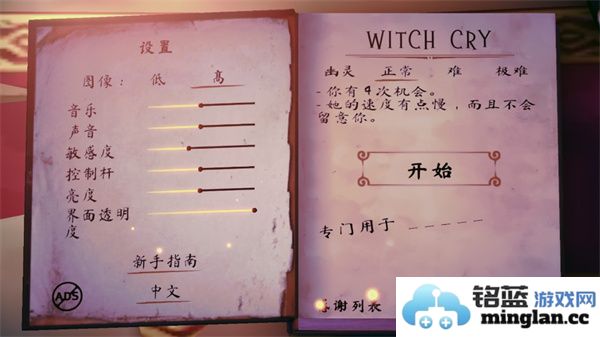 设置
图像： 低 高
音乐
声音
敏感度
控制杆
亮度
界面透明
度
新手指南
中文
ADS
WITCH CRY
幽灵 正常 难 极难
- 你有4次机会。
- 她的速度有点慢，而且不会
留意你。
开始
专门用于 _ _ _ _ _
感谢列表
铭蓝游戏网
minglan.cc